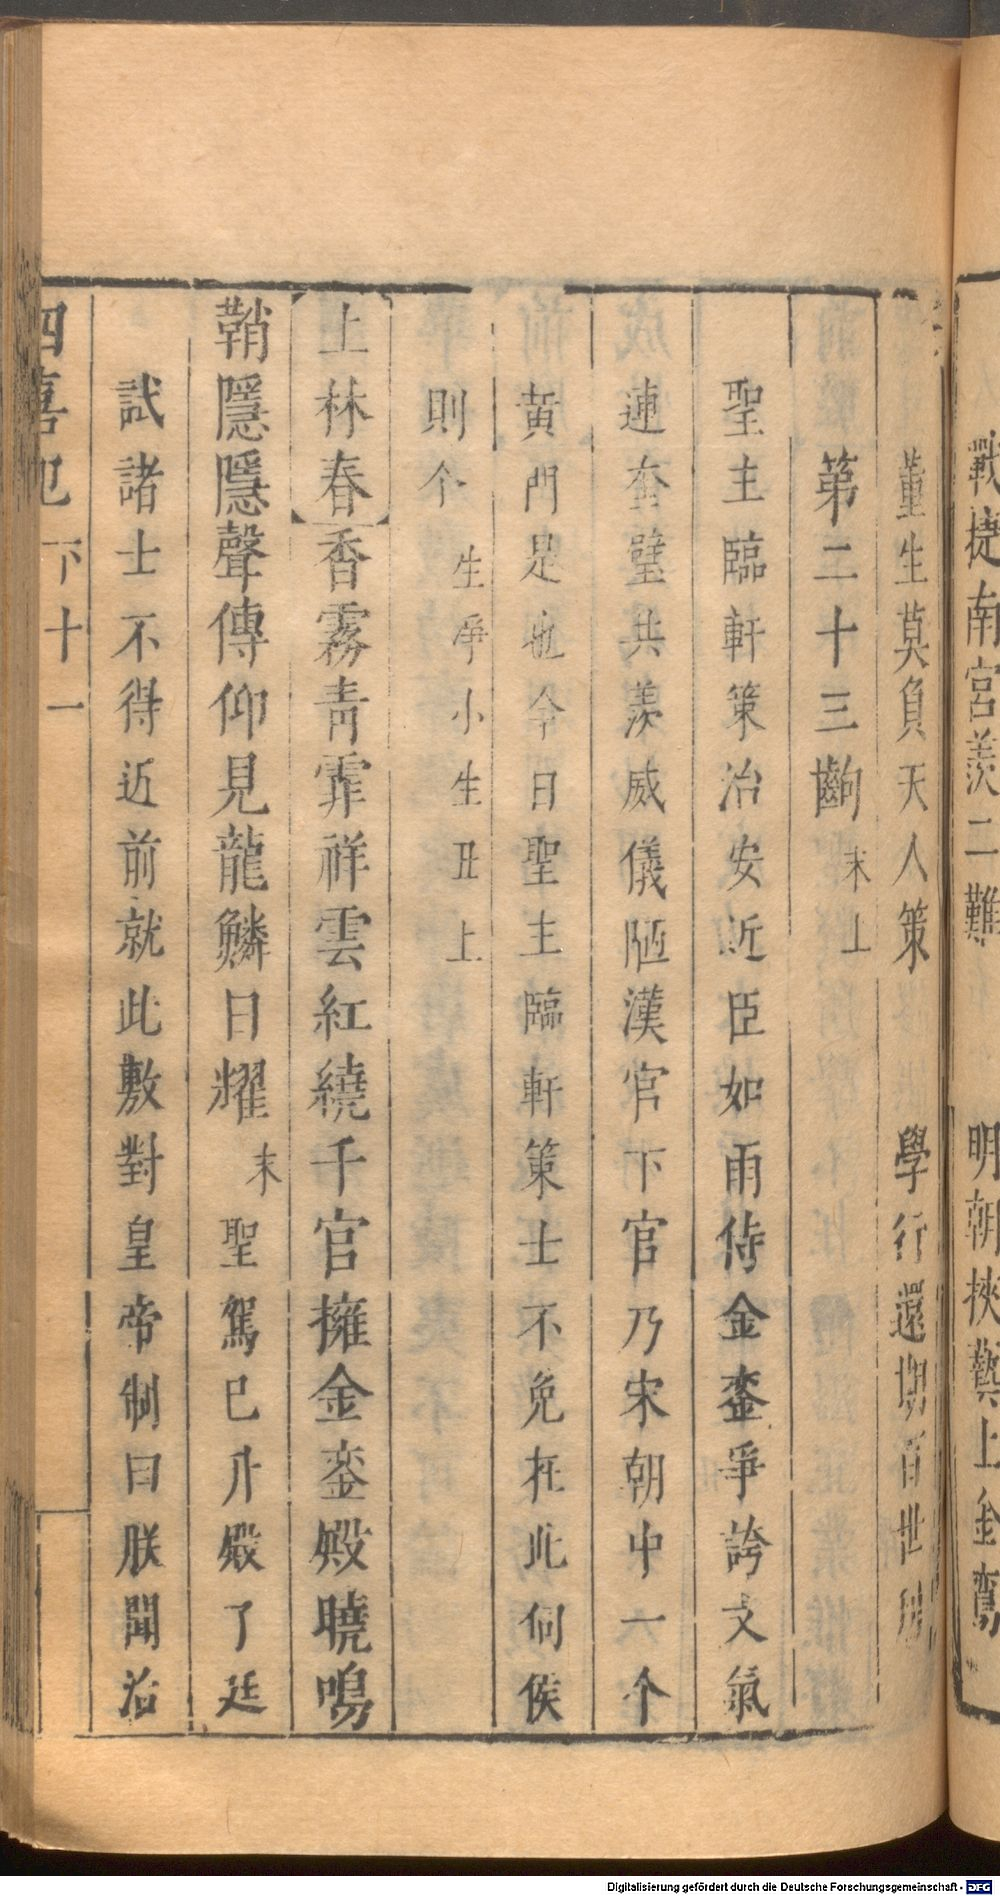 戰捷南宮羨二難　明朝挾藝上金鸞
董生莫負天人策　學行還期百世
第二十三齣 末上
聖主臨軒策治安近臣如雨侍金鑾爭誇文氣
連奎璧共羨威儀陋漢官下官乃宋朝中一个
黃門是也今日聖主臨軒策士不免在此伺候
則个 生淨小生丑上
上林春香霧靑霏祥雲紅繞千官擁金鑾殿曉鳴
鞘隱隱聲傳仰見龍鱗日耀 末 聖駕已升殿了廷
試諸士不得近前就此敷對皇帝制曰朕聞治
四喜記 下 十一
Digitalisierung gefördert durch die Deutsche Forschungsgemeinschaft - DFG